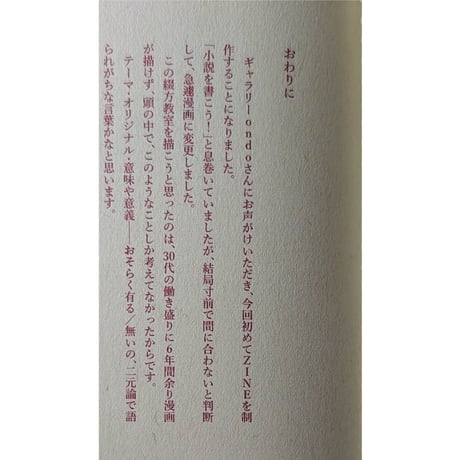 おわりに
ギャラリーondoさんにお声がけいただき、今回初めてZINEを制
作することになりました。
「小説を書こう！」と息巻いていましたが、結局寸前で間に合わないと判断
して、急遽漫画に変更しました。
この綴方教室を描こうと思ったのは、30代の働き盛りに6年間余り漫画
が描けず、頭の中で、このようなことしか考えてなかったからです。
テーマ・オリジナル・意味や意義――おそらく有る／無いの、二元論で語
られがちな言葉かなと思います。